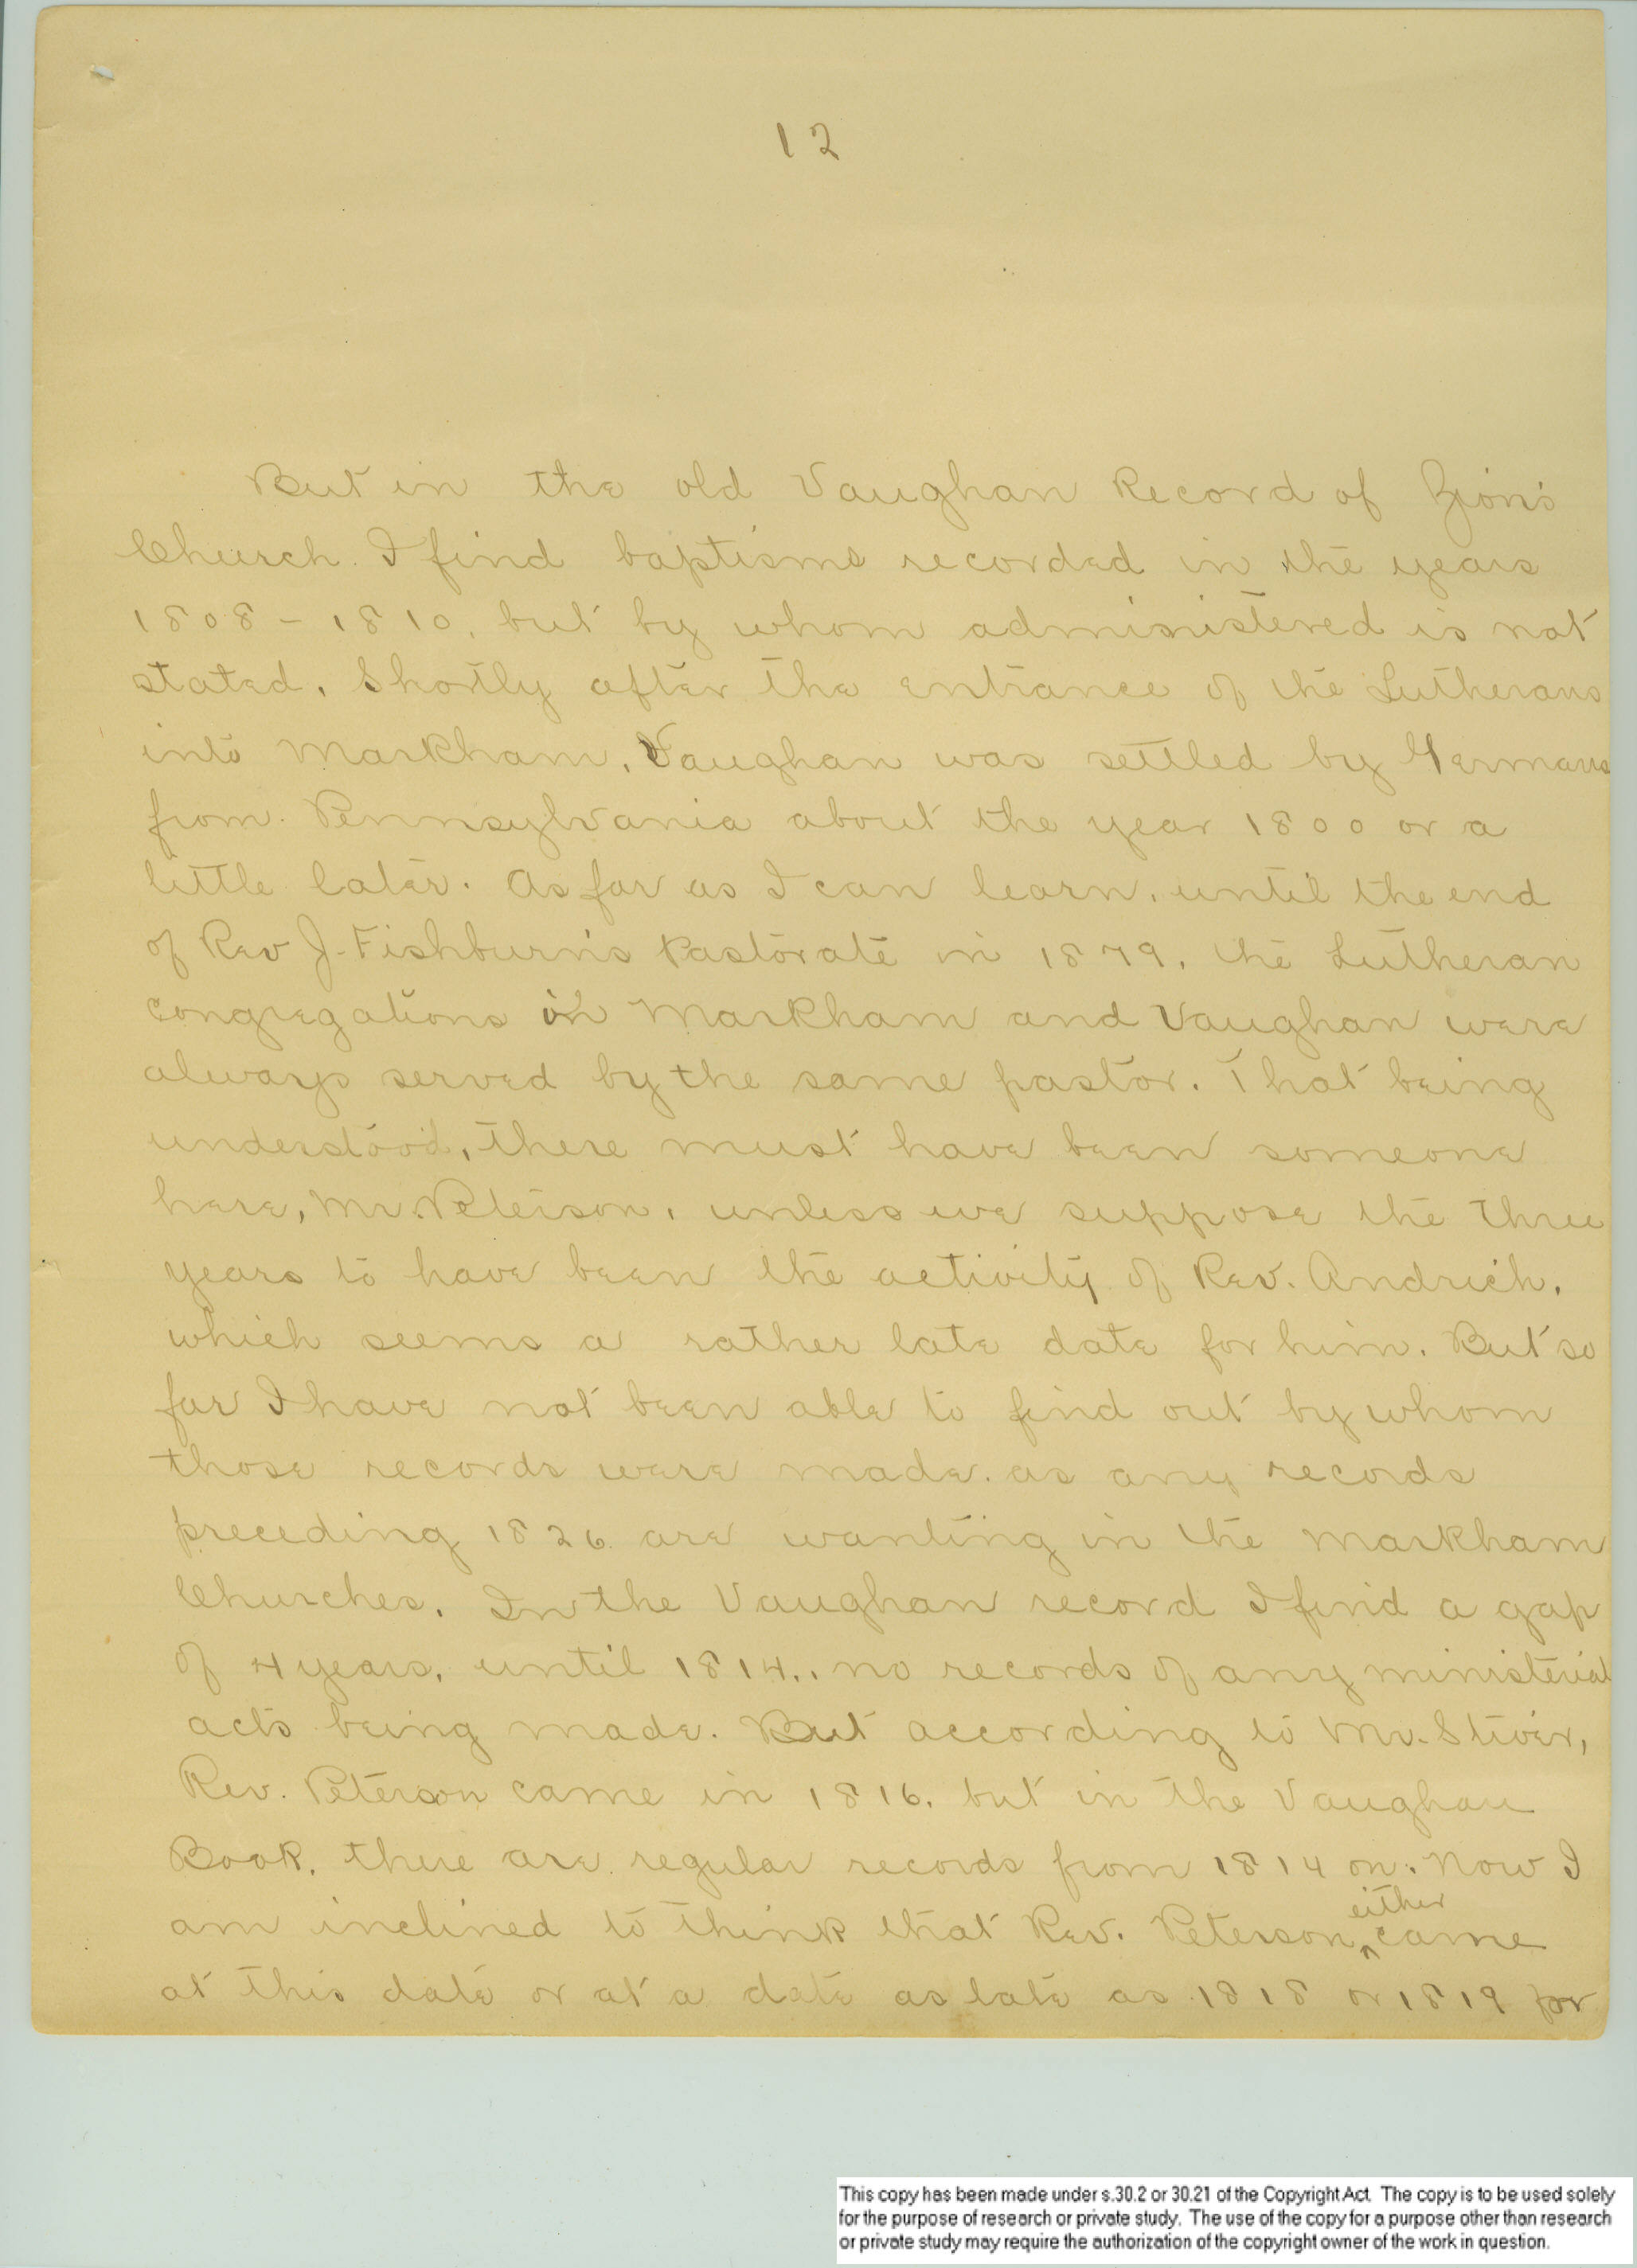 12
But in the old Vaughan Record of Zion's
Church I find baptisms recorded in the years
1808 - 1810, but by whom administered is not
stated. Shortly after the entrance of the Lutherans
into Markham, Vaughan was settled by Germans
from Pennsylvania about the year 1800 or a
little later. As far as I can learn, until the end
of Rev J. Fishburn's Pastorate in 1879, the Lutheran
congregations in Markham and Vaughan were
always served by the same pastor. That being
understood, there must have been someone
here, Mr. Peterson, unless we suppose the three
years to have been the activity of Rev. Andrich,
which seems a rather late date for him. But so
far I have not been able to find out by whom
those records were made. as any records
preceding 1826 are wanting in the Markham
Churches. In the Vaughan record I find a gap
of 4 years, until 1814., no records of any ministerial
acts being made. But according to Mr. Stiver,
Rev. Peterson came in 1816, but in the Vaughan
Book, there are regular records from 1814 on. Now I
am inclined to think that Rev. Peterson ^either came
at this date or at a date as late as 1818 or 1819 for
This copy has been made under s.30.2 or 30.21 of the Copyright Act. The copy is to be used solely
for the purpose of research or private study. The use of the copy for a purpose other than research
or private study may require the authorization of the copyright owner of the work in question.